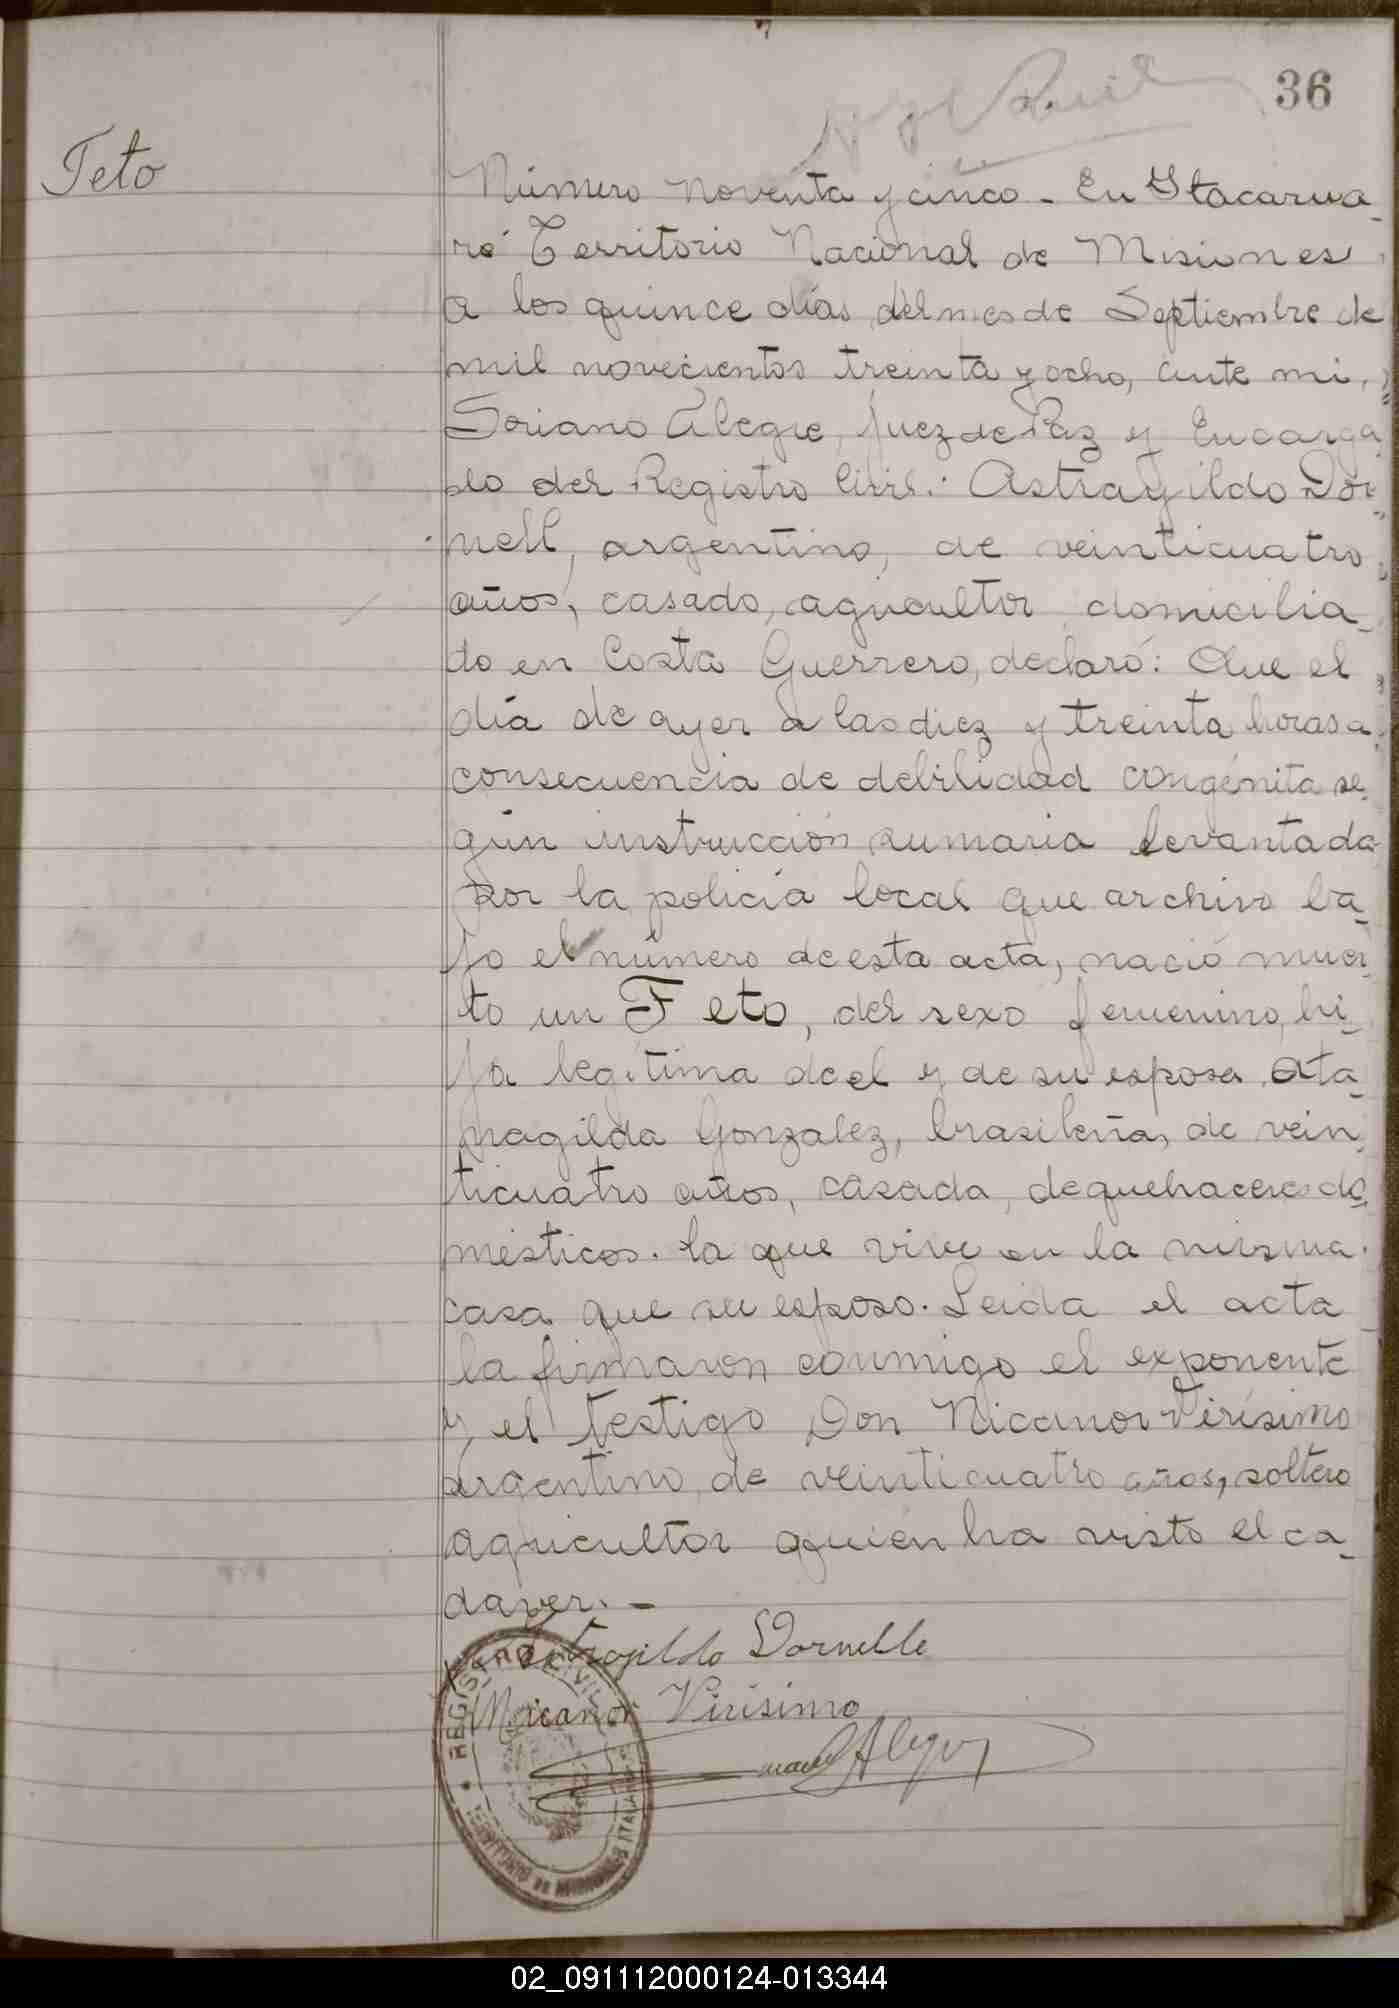 36
Feto
Número noventa y cinco - En Itacarua-
ré Territorio Nacional de Misiones
a los quince días del mes de Septiembre de
mil novecientos treinta y ocho, ante mi,
Soriano Alegre, Juez de Paz y Encarga
do del Registro Civil: Astragildo Dor-
nell, argentino, de veinticuatro
años, casado, agricultor domicilia-
do en Costa Guerrero, declaró: Que el
día de ayer a las diez y treinta horas a
consecuencia de debilidad congénita se-
gún instrucción sumaria levantada
por la policía local que archivo ba-
jo el número de esta acta, nació muer-
to un Feto, del sexo femenino, hi-
ja legítima de el y de su esposa Ata-
nagilda Gonzalez, brasileña, de vein
ticuatro años, casada, de quehaceres do-
mésticos. la que vive en la misma
casa que su esposo. Leida el acta
la firmaron conmigo el exponente
y el testigo Don Nicanor Virísimo
argentino, de veinticuatro años, soltero
agricultor quien ha visto el ca-
daver. -
Dornelle
Nicanor Virisimo
SAlegre
REGISTRO CIVIL
TERRITORIO DE MISIONES
02_091112000124-013344